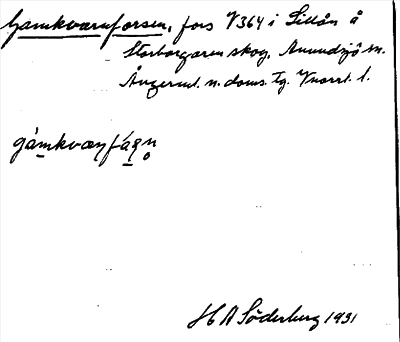 Gamkvarnforsen, fors V364 i Lillån å
Storborgaren skog, Anundsjö sn.
Ångerml. n. doms. tg. Vnorrl. l.
gámkvæṇfạṣṇ
H A Söderberg 1931